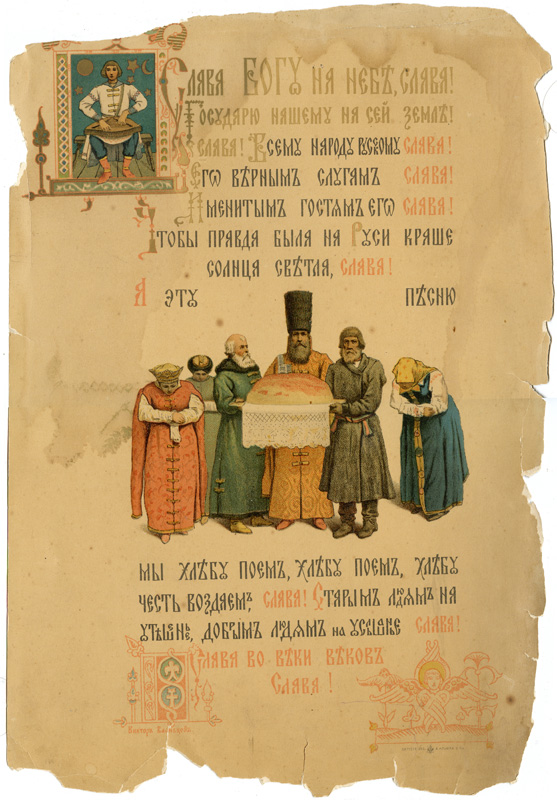 Слава Богу на небѣ, слава!
Государю нашему на сей землѣ!
Слава! Всему народу русскому слава!
Его вѣрнымъ слугамъ слава!
Именитымъ гостямъ его слава!
Чтобы правда была на Руси краше
солнца свѣтла, слава!
А эту пѣсню
мы хлѣбу поемъ, хлѣбу поемъ, хлѣбу
честь воздаемъ, слава! Старымъ людямъ на
утѣшенье, добрымъ людямъ на услышанье слава!
Слава во вѣки вѣковъ
Слава!
Викторъ Васнецовъ